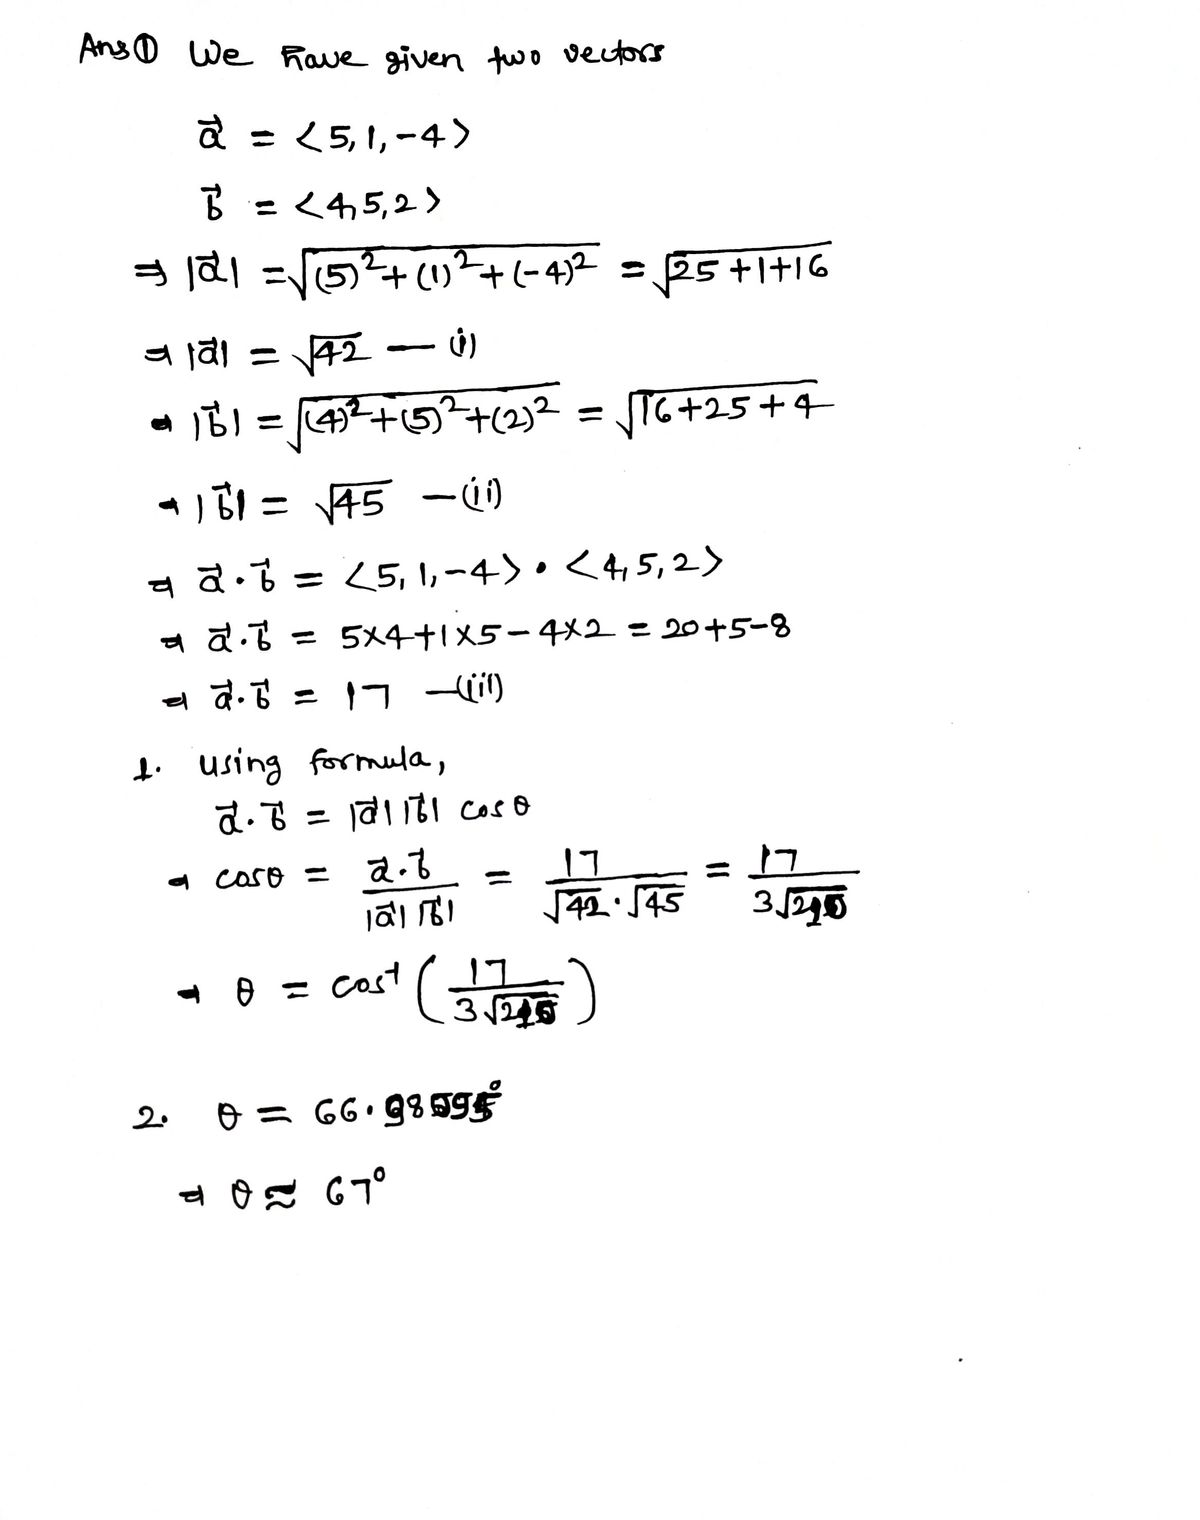 Ans① We have given two vectors
a⃗ = <5, 1, -4>
b⃗ = <4, 5, 2>
⇒ |a⃗| = √((5)² + (1)² + (-4)²) = √(25 + 1 + 16)
⇒ |a⃗| = √42 — (i)
⇒ |b⃗| = √((4)² + (5)² + (2)²) = √(16 + 25 + 4)
⇒ |b⃗| = √45 — (ii)
⇒ a⃗ · b⃗ = <5, 1, -4> · <4, 5, 2>
⇒ a⃗ · b⃗ = 5×4 + 1×5 - 4×2 = 20 + 5 - 8
⇒ a⃗ · b⃗ = 17 — (iii)
1. using formula,
a⃗ · b⃗ = |a⃗| |b⃗| cos θ
⇒ cos θ = a⃗ · b⃗ / |a⃗| |b⃗| = 17 / √42 · √45 = 17 / 3√210
⇒ θ = cos⁻¹ (17 / 3√210)
2. θ =
⇒ θ ≈ 67°